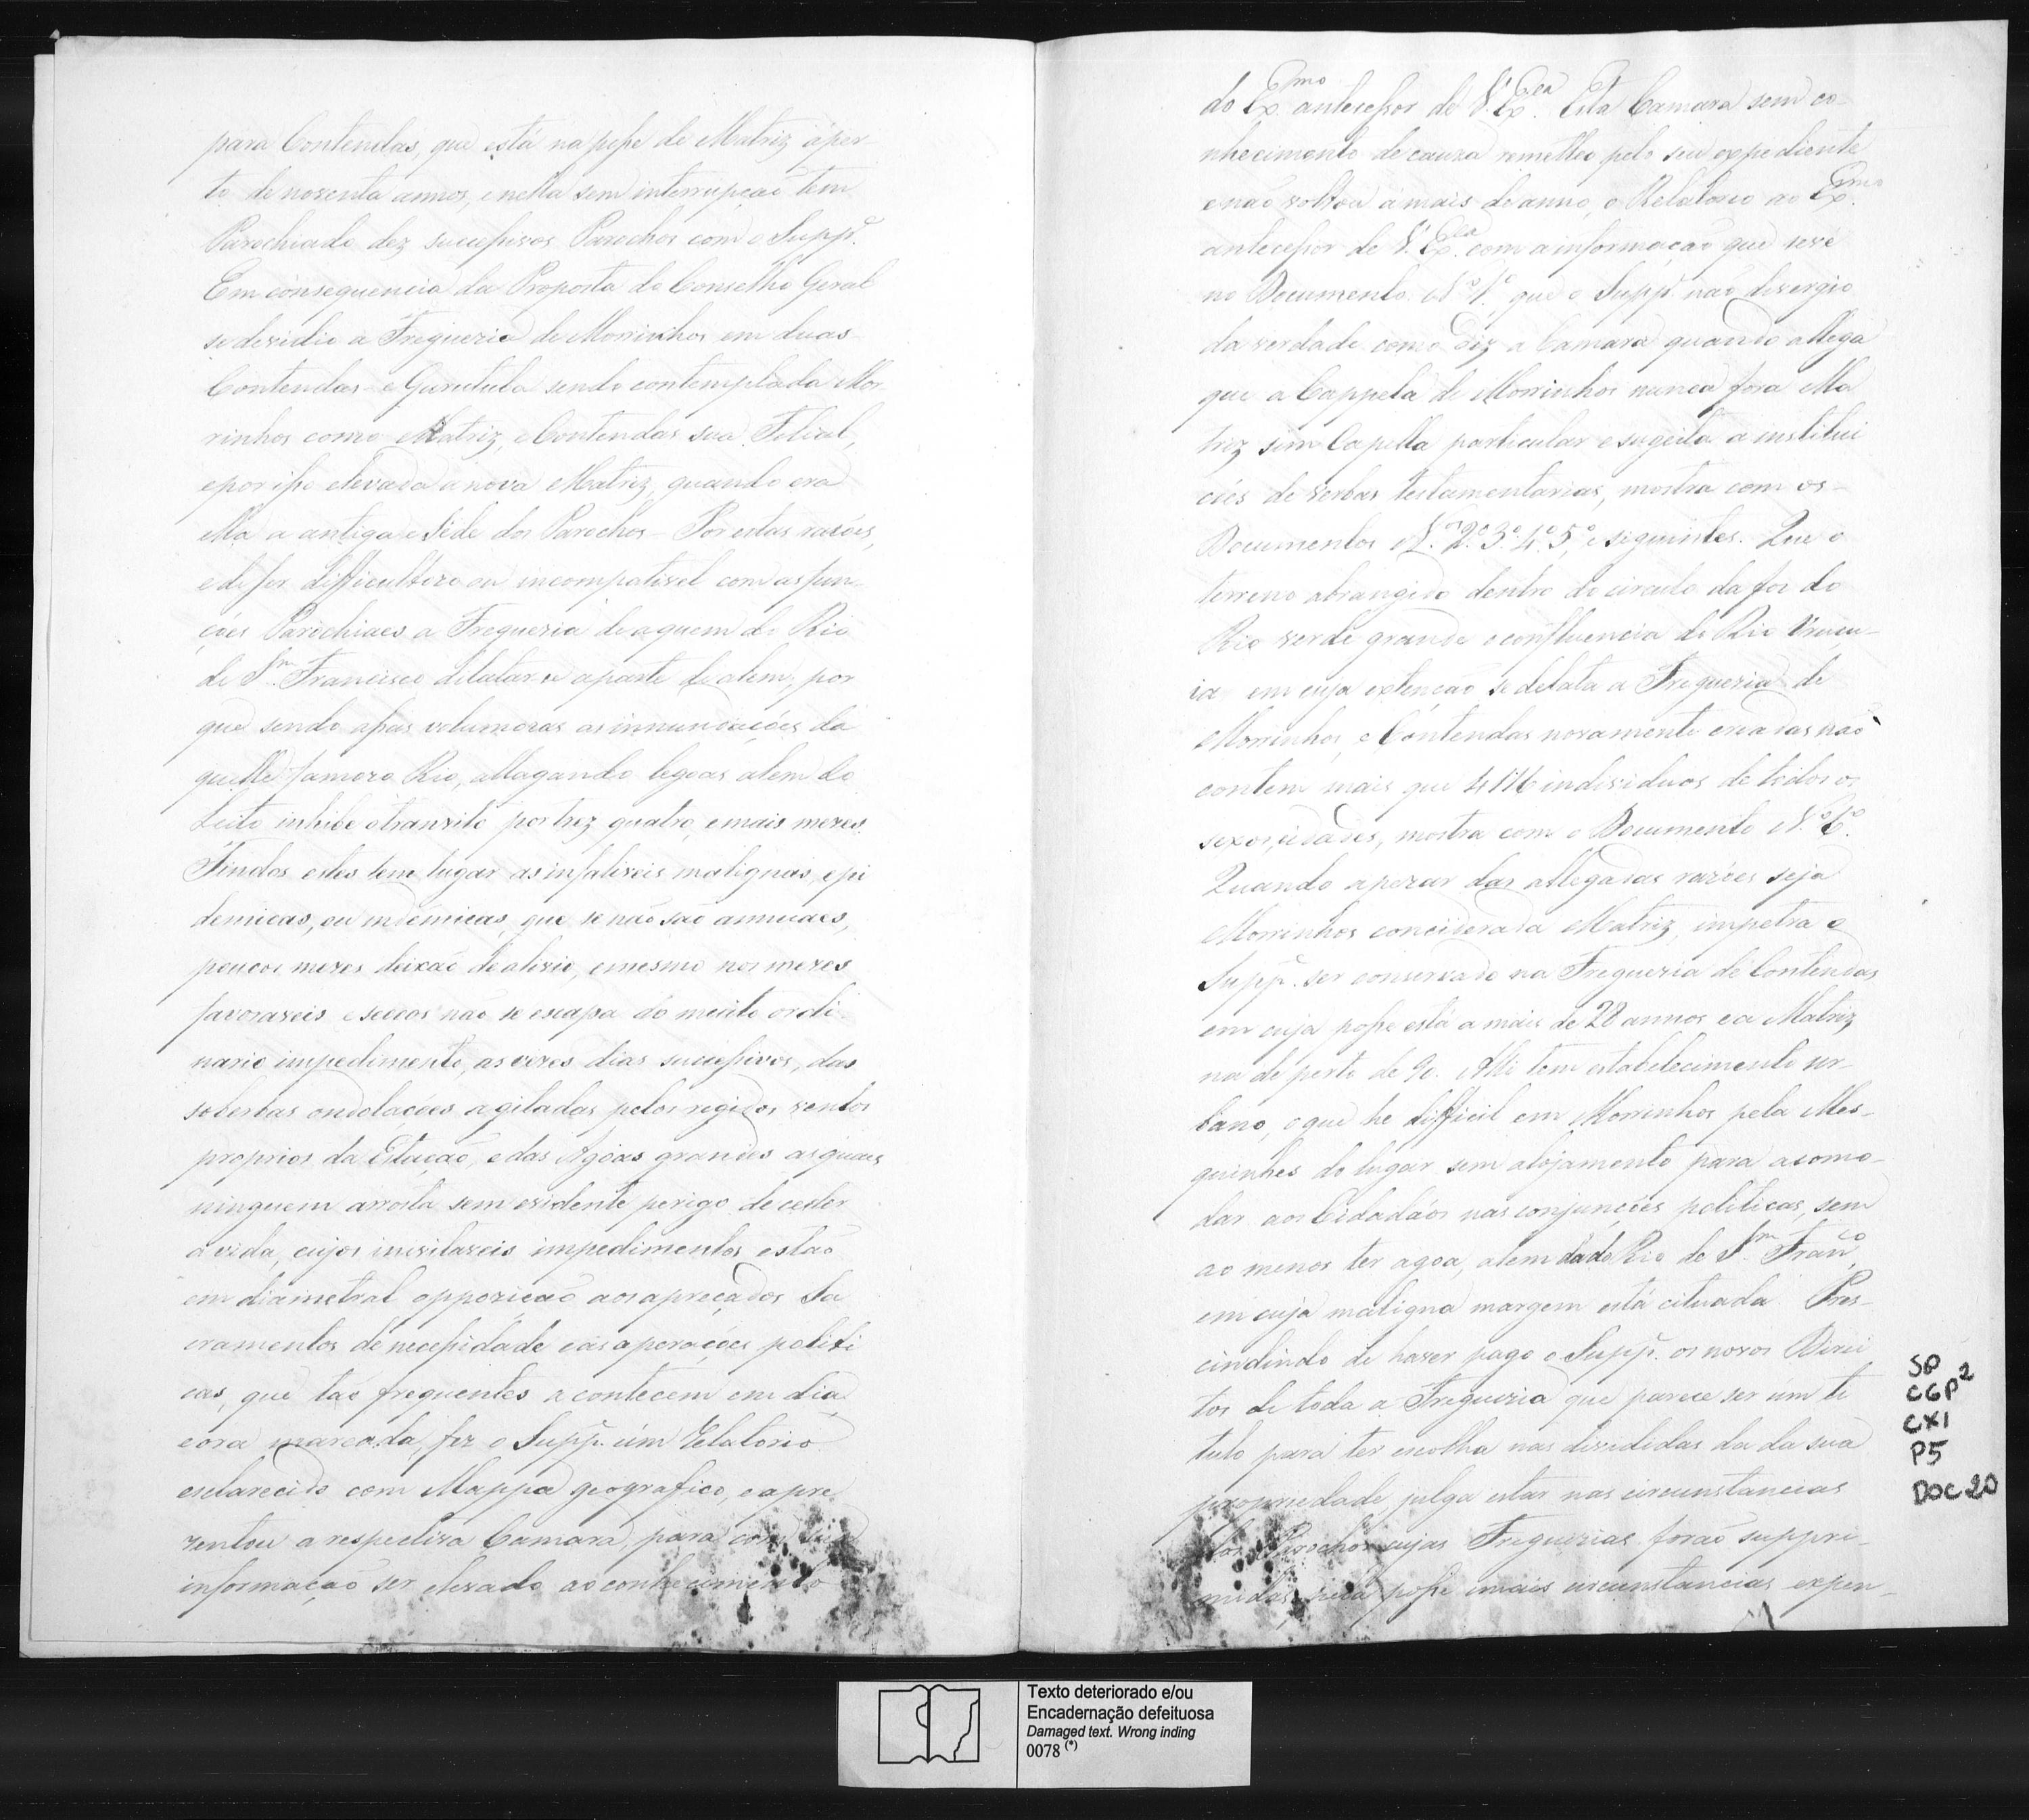 para Contendas, que está na posse de Matriz á per-
to de noventa annos, e nella sem interrupção tem
Parochiado dez sucessivos Parochos com o Supp.e
Em consequencia da Proposta do Conselho Geral
se devidio a Freguezia de Morrinhos em duas
Contendas e Gurutuba sendo contemplada Mor
rinhos como Matriz, e Contendas sua Felial,
e por isso elevada a nova Matriz, quando era
ella a antiga e Séde dos Parochos - Por estas razões,
e de ser difficultozo ou incompativel com as fun-
ções Parochiaes a Freguezia de aquem do Rio
de S.m Francisco dilatar-se a parte de alem, por
que sendo assas volumozas as innundações da
quelle famozo Rio, allagando legoas alem do
Leito inhibe o tranzito por trez, quatro, e mais mezes.
Findos estes tem lugar as infaliveis malignas, epi
demicas, ou indemicas, que se não são annuaes,
poucos mezes deixão de alivio, e mesmo nos mezes
favoraveis e seccos não se escapa do muito ordi
nario impedimento, as vezes dias sucessivos, das
soberbas ondolações agitadas pelos regidos ventos
proprios da Estação, e das Agoas grandes as quaes
ninguem arrosta sem evidente perigo de ceder
a vida, cujos inevitaveis impedimentos estão
em diametral oppozição aos apreçados Sa
cramentos de necessidade e ás aporações politi
cas, que tão frequentes acontecem em dia
e ora marcada, fez o Supp.e úm Relatorio
esclarecido com Mappa geografico, e apre
zentou a respectiva Camara, para com sua
informação ser elevado ao conhecimento
do Ex.mo antecessor de V. Ex.cia Esta Camara sem co-
nhecimento de cauza remetteo pelo seu expediente
e não voltou á mais de anno, o Relatorio ao Ex.mo
antecessor de V. Ex.cia com a informação que se vê
no Documento N.o 1.o que o Supp.e não divergio
da verdade como diz a Camara quando allega
que a Cappela de Morrinhos nunca fora Ma
triz sim Capella particular e sugeita a institui
ções de verbas testamentarias, mostra com os
Documentos N.os 2.o 3.o 4.o 5.o, e seguintes. Que o
terreno abrangido dentro do circulo da foz do
Rio verde grande e confluencia do Rio Urucu-
ia em cuja extenção se delata a Freguezia de
Morrinhos, e Contendas novamente creadas não
contem mais que 4116 individuos de todos os
sexos, e idades, mostra com o Documento N.o 6.o
Quando apezar das allegadas razões seja
Morrinhos conciderada Matriz, impetra o
Supp.e ser conservado na Freguezia de Contendas
em cuja posse está a mais de 28 annos e a Matriz
na de perto de 90. Alli tem estabelecimento ur-
bano, o que he difficil em Morrinhos pela Mes-
quinhes do lugar sem alojamento para acomo-
dar aos Cidadãos nas conjuncções politicas, sem
ao menos ter agoa, alem da do Rio de S.m Fran.co,
em cuja maligna margem está cituada. Pres-
cindindo de haver pago o Supp.e os novos Direi
tos de toda a Freguezia que parece ser um ti
tulo para ter escolha nas divididas da da sua
propriedade, julga estar nas circunstancias
dos Parochos cujas Freguezias forão suppri-
midas, pela posse e mais circunstancias expen-
SP
CGP2
CX1
P5
DOC20
Texto deteriorado e/ou
Encadernação defeituosa
Damaged text. Wrong inding
0078 (*)